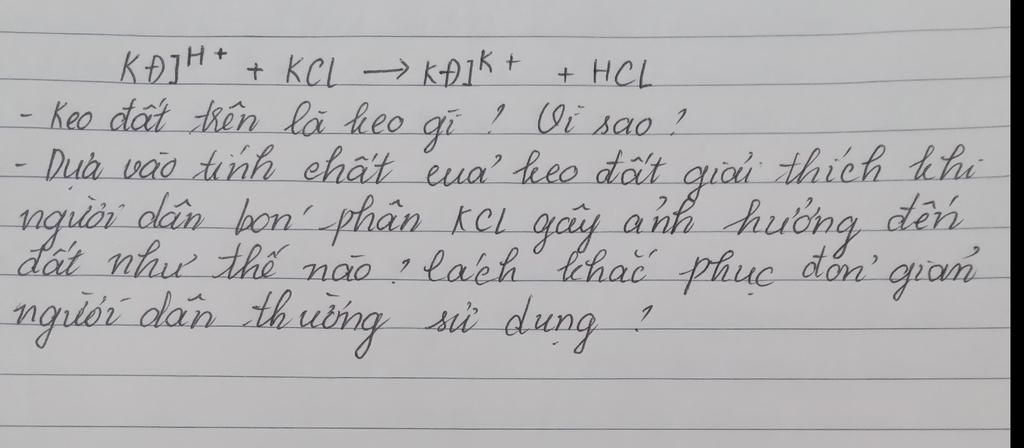 KĐ]H+ + KCL → KĐ]K+ + HCL
- Keo đất trên là keo gì? Vì sao?
- Dựa vào tính chất của keo đất giải thích khi
người dân bón phân KCL gây ảnh hưởng đến
đất như thế nào? Cách khắc phục đơn giản
người dân thường sử dụng?